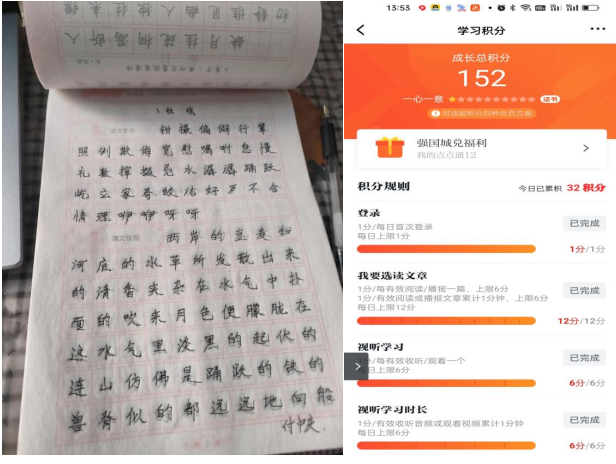 3.社戏
钳撮偏僻行辈
照例欺侮宽慰嘱咐怠慢
礼数撺掇凫水潺潺踊跃
屹立家眷皎洁好歹不合
情理咿咿呀呀
两岸的豆麦和
河底的水草所发散出来
的清香夹杂在水气中扑
面的吹来月色便朦胧在
这水气里淡黑的起伏的
连山仿佛是踊跃的铁的
兽脊似的都远远地向船
13:53
学习积分
成长总积分
152
一心一意
证书
强国城兑福利
我的点点通12
积分规则
今日已累积 32 积分
登录
1分/每日首次登录
每日上限1分
已完成
1分/1分
我要选读文章
1分/每有效阅读/播报一篇，上限6分
1分/有效阅读或播报文章累计1分钟，上限6分
每日上限12分
已完成
12分/12分
视听学习
/每有效收听/观看一个
日上限6分
已完成
6分/6分
视听学习时长
1分/有效收听音频或观看视频累计1分钟
每日上限6分
已完成
6分/6分